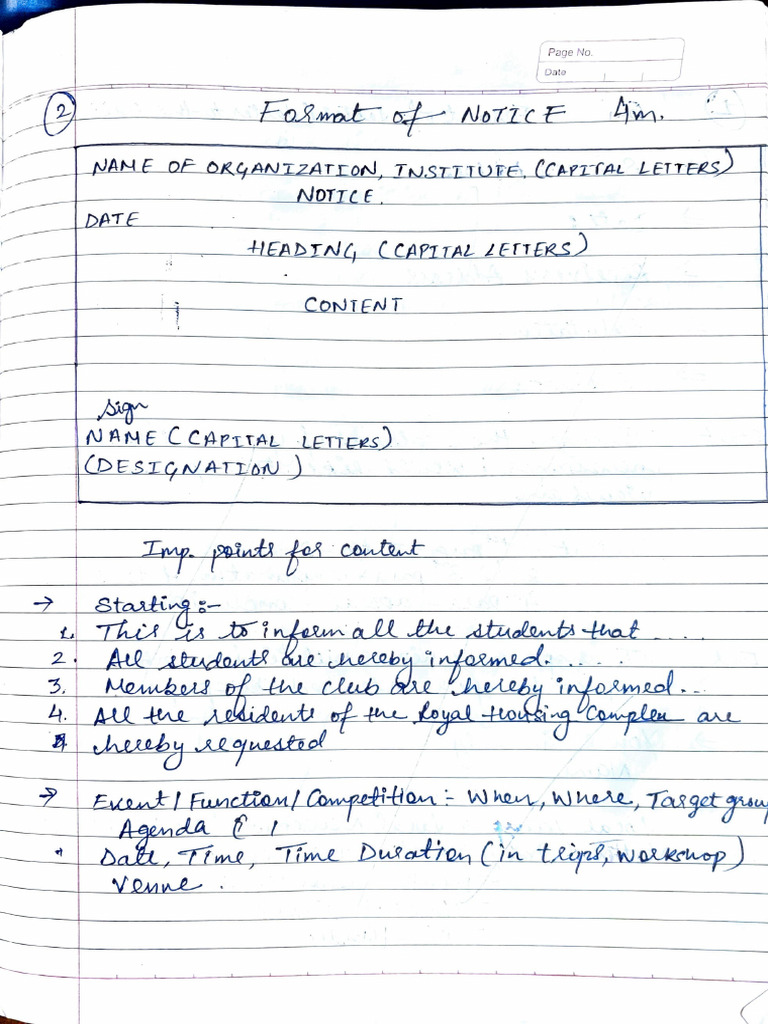 Page No.
Date
2
Format of NOTICE 4m.
NAME OF ORGANIZATION, INSTITUTE. (CAPITAL LETTERS)
NOTICE.
DATE
HEADING (CAPITAL LETTERS)
CONTENT
Sign
NAME (CAPITAL LETTERS)
(DESIGNATION)
Imp. points for content
→ Starting :-
1. This is to inform all the students that ....
2. All students are hereby informed. ....
3. Members of the club are hereby informed...
4. All the residents of the Royal Housing Complex are
hereby requested
→ Event / Function / Competition :- When, Where, Target group
Agenda
• Date, Time, Time Duration (in trips, workshop)
Venue.